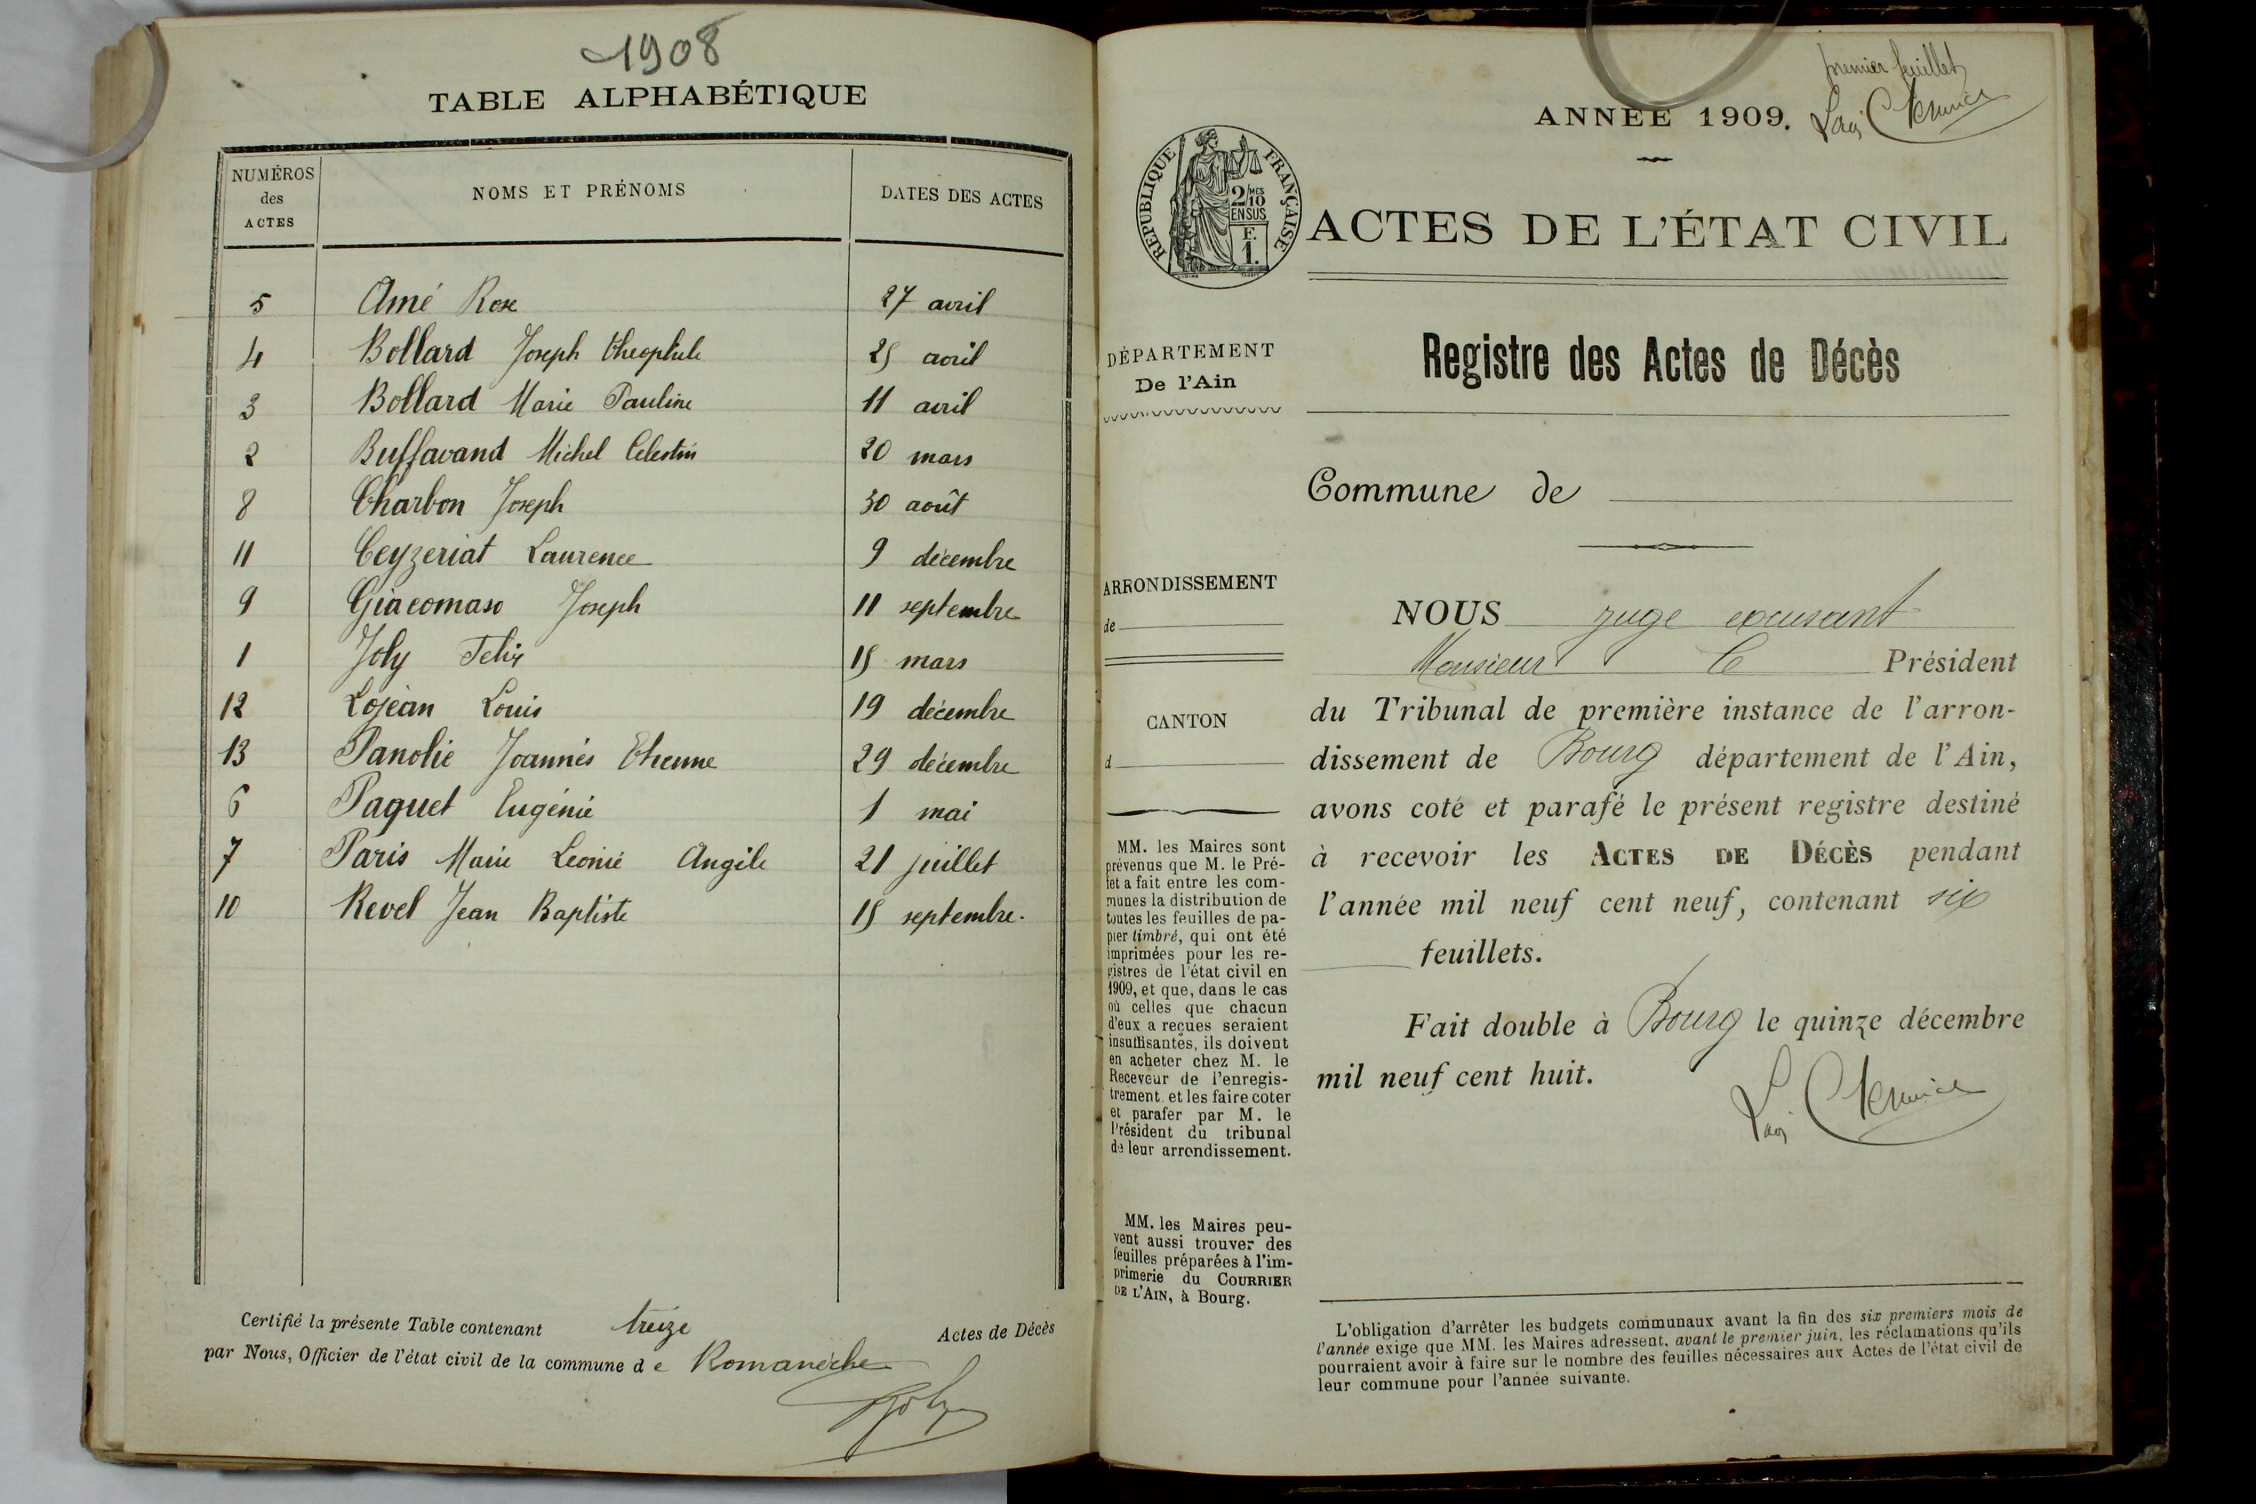 1908
TABLE ALPHABÉTIQUE
NUMÉROS des ACTES NOMS ET PRÉNOMS DATES DES ACTES
5 Amé Rose 27 avril
4 Bollard Joseph théophile 25 avril
3 Bollard Marie Pauline 11 avril
2 Buffavand Michel Celestin 20 mars
8 Charbon Joseph 30 août
11 Ceyzeriat Laurence 9 décembre
9 Giacomaso Joseph 11 septembre
1 Joly Felix 15 mars
12 Lojean Louis 19 décembre
13 Panolie Joannès Etienne 29 décembre
6 Paquet Eugénie 1 mai
7 Paris Marie Leonie Angèle 21 juillet
10 Revel Jean Baptiste 15 septembre.
Certifié la présente Table contenant treize Actes de Décès
par Nous, Officier de l'état civil de la commune d e Romanèche
Joly
premier feuillet
ANNÉE 1909.
RÉPUBLIQUE FRANÇAISE
2/10 MES
EN SUS
F.
1.
ACTES DE L'ÉTAT CIVIL
DÉPARTEMENT
De l'Ain
Registre des Actes de Décès
Commune de
ARRONDISSEMENT
de
CANTON
d
MM. les Maires sont
prévenus que M. le Pré-
fet a fait entre les com-
munes la distribution de
toutes les feuilles de pa-
pier timbré, qui ont été
imprimées pour les re-
gistres de l'état civil en
1909, et que, dans le cas
où celles que chacun
d'eux a reçues seraient
insuffisantes, ils doivent
en acheter chez M. le
Receveur de l'enregis-
trement et les faire coter
et parafer par M. le
Président du tribunal
de leur arrondissement.
MM. les Maires peu-
vent aussi trouver des
feuilles préparées à l'im-
primerie du COURRIER
DE L'AIN, à Bourg.
NOUS juge excusant
Monsieur le Président
du Tribunal de première instance de l'arron-
dissement de Bourg département de l'Ain,
avons coté et parafé le présent registre destiné
à recevoir les ACTES DE DÉCÈS pendant
l'année mil neuf cent neuf, contenant six
feuillets.
Fait double à Bourg le quinze décembre
mil neuf cent huit.
L'obligation d'arrêter les budgets communaux avant la fin des six premiers mois de
l'année exige que MM. les Maires adressent, avant le premier juin, les réclamations qu'ils
pourraient avoir à faire sur le nombre des feuilles nécessaires aux Actes de l'état civil de
leur commune pour l'année suivante.